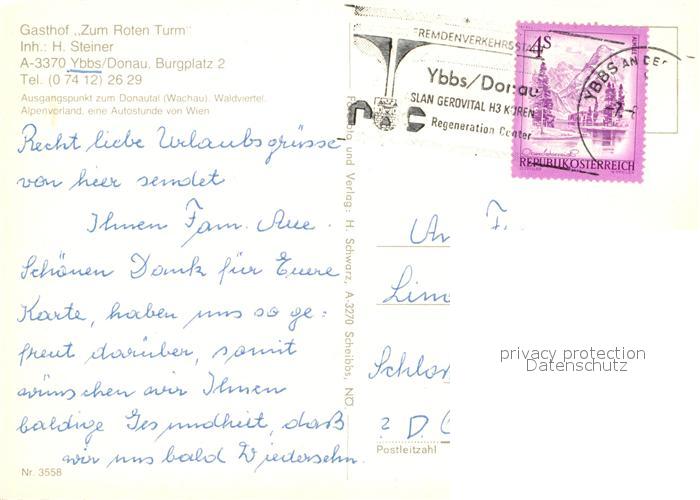 Gasthof „Zum Roten Turm"
Inh.: H. Steiner
A-3370 Ybbs/Donau, Burgplatz 2
Tel. (0 74 12) 26 29
Ausgangspunkt zum Donautal (Wachau). Waldviertel.
Alpenvorland, eine Autostunde von Wien
Recht liebe Urlaubsgrüsse
von hier sendet
Ihnen Fam. Aue.
Schönen Dank für Euere
Karte, haben uns so ge=
freut darüber, somit
wünschen wir Ihnen
baldige Gesundheit, daß
wir uns bald Wiedersehn.
Nr. 3558
Photo und Verlag: H. Schwarz, A-3270 Scheibbs, NÖ
FREMDENVERKEHRSSTA
Ybbs/Donau
ASLAN GEROVITAL H3 KUREN
Regeneration Center
4S
REPUBLIK ÖSTERREICH
YBBS AN DER
An F
Postleitzahl
privacy protection
Datenschutz